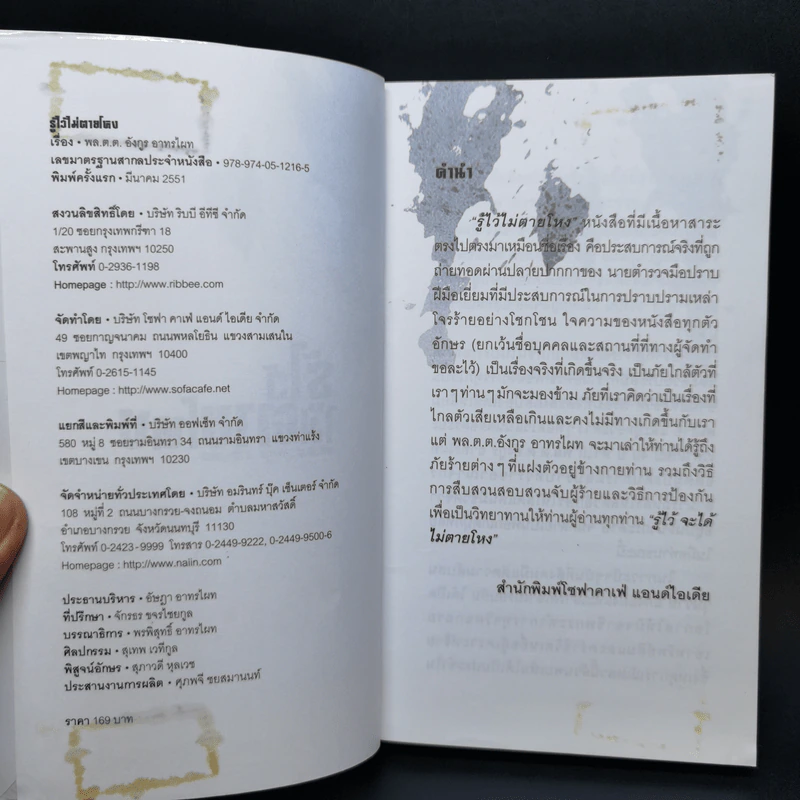 รู้ไว้ไม่ตายโหง
เรื่อง • พล.ต.ต. อังกูร อาทรไผท
เลขมาตรฐานสากลประจำหนังสือ • 978-974-05-1216-5
พิมพ์ครั้งแรก • มีนาคม 2551
สงวนลิขสิทธิ์โดย • บริษัท ริบบี อีทีซี จำกัด
1/20 ซอยกรุงเทพกรีฑา 18
สะพานสูง กรุงเทพฯ 10250
โทรศัพท์ 0-2936-1198
Homepage : http://www.ribbee.com
จัดทำโดย • บริษัท โซฟา คาเฟ่ แอนด์ ไอเดีย จำกัด
49 ซอยกาญจนาคม ถนนพหลโยธิน แขวงสามเสนใน
เขตพญาไท กรุงเทพฯ 10400
โทรศัพท์ 0-2615-1145
Homepage : http://www.sofacafe.net
แยกสีและพิมพ์ที่ • บริษัท ออฟเซ็ท จำกัด
580 หมู่ 8 ซอยรามอินทรา 34 ถนนรามอินทรา แขวงท่าแร้ง
เขตบางเขน กรุงเทพฯ 10230
จัดจำหน่ายทั่วประเทศโดย • บริษัท อมรินทร์ บุ๊ค เซ็นเตอร์ จำกัด
108 หมู่ที่ 2 ถนนบางกรวย-จงถนอม ตำบลมหาสวัสดิ์
อำเภอบางกรวย จังหวัดนนทบุรี 11130
โทรศัพท์ 0-2423-9999 โทรสาร 0-2449-9222, 0-2449-9500-6
Homepage : http://www.naiin.com
ประธานบริหาร • อัษฎา อาทรไผท
ที่ปรึกษา • จักรธร ขจรไชยกูล
บรรณาธิการ • พรพิสุทธิ์ อาทรไผท
ศิลปกรรม • สุเทพ เวทีกูล
พิสูจน์อักษร • สุภาวดี หุลเวช
ประสานงานการผลิต • ศุภพจี ชยสมานนท์
ราคา 169 บาท
คำนำ
"รู้ไว้ไม่ตายโหง" หนังสือที่มีเนื้อหาสาระ
ตรงไปตรงมาเหมือนชื่อเรื่อง คือประสบการณ์จริงที่ถูก
ถ่ายทอดผ่านปลายปากกาของ นายตำรวจมือปราบ
ฝีมือเยี่ยมที่มีประสบการณ์ในการปราบปรามเหล่า
โจรร้ายอย่างโชกโชน ใจความของหนังสือทุกตัว
อักษร (ยกเว้นชื่อบุคคลและสถานที่ที่ทางผู้จัดทำ
ขอละไว้) เป็นเรื่องจริงที่เกิดขึ้นจริง เป็นภัยใกล้ตัวที่
เราๆท่านๆมักจะมองข้าม ภัยที่เราคิดว่าเป็นเรื่องที่
ไกลตัวเสียเหลือเกินและคงไม่มีทางเกิดขึ้นกับเรา
แต่ พล.ต.ต.อังกูร อาทรไผท จะมาเล่าให้ท่านได้รู้ถึง
ภัยร้ายต่างๆที่แฝงตัวอยู่ข้างกายท่าน รวมถึงวิธี
การสืบสวนสอบสวนจับผู้ร้ายและวิธีการป้องกัน
เพื่อเป็นวิทยาทานให้ท่านผู้อ่านทุกท่าน "รู้ไว้ จะได้
ไม่ตายโหง"
สำนักพิมพ์โซฟาคาเฟ่ แอนด์ไอเดีย